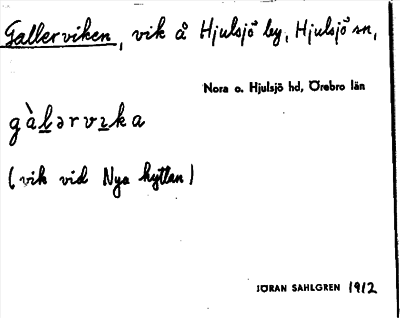 Gallerviken, vik å Hjulsjö by, Hjulsjö sn,
Nora o. Hjulsjö hd, Örebro län
gàlərvɪka
(vik vid Nya hyttan)
JÖRAN SAHLGREN 1912